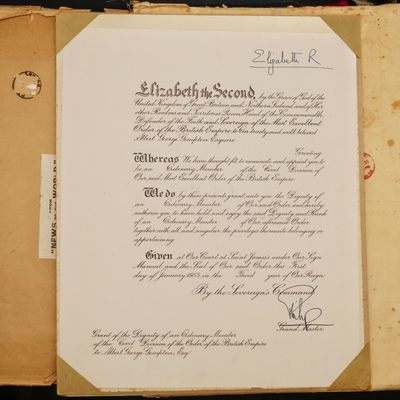 Elizabeth R
Elizabeth the Second, by the Grace of God of the
United Kingdom of Great Britain and Northern Ireland and of Her
other Realms and Territories Queen, Head of the Commonwealth,
Defender of the Faith and Sovereign of the Most Excellent
Order of the British Empire to Our trusty and well beloved
Albert George Gompton Esquire
Greeting
Whereas We have thought fit to nominate and appoint you to
be an Ordinary Member of the Civil Division of
Our said Most Excellent Order of the British Empire
We do by these presents grant unto you the Dignity of
an Ordinary Member of Our said Order and hereby
authorise you to have hold and enjoy the said Dignity and Rank
of an Ordinary Member of Our aforesaid Order
together with all and singular the privileges thereunto belonging or
appertaining.
Given at Our Court at Saint James's under Our Sign
Manual and the Seal of Our said Order this First
day of January 1955 in the Third year of Our Reign.
By the Sovereign's Command.
Grand Master.
Grant of the Dignity of an Ordinary Member
of the Civil Division of the Order of the British Empire
to Albert George Gompton, Esq.
"NEWS OF THE WORLD"